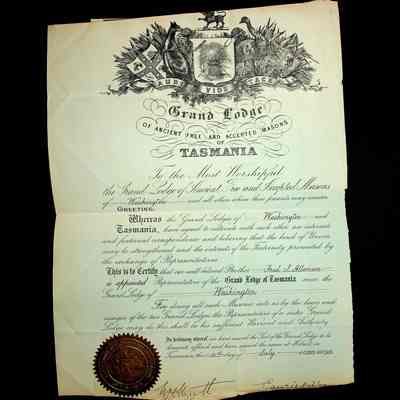 AUDI VIDE TACE
Grand Lodge
OF ANCIENT FREE AND ACCEPTED MASONS
OF
TASMANIA
To the Most Worshipful
the Grand Lodge of Ancient Free and Accepted Masons
of Washington and all others whom these presents may concern
GREETING.
Whereas the Grand Lodges of Washington and
Tasmania, have agreed to cultivate with each other an intimate
and fraternal correspondence and believing that the bond of Union
may be strengthened and the interests of the Fraternity promoted by
the exchange of Representatives
This is to Certify that our well beloved Brother Fred
is appointed Representative of the Grand Lodge of Tasmania near the
Grand Lodge of Washington
For doing all such Masonic acts as by the laws and
usages of the two Grand Lodges the Representative of a sister Grand
Lodge may do this shall be his sufficient Warrant and Authority
In testimony whereof we have caused the Seal of the Grand Lodge to be
hereunto affixed and have signed the same at Hobart in
Tasmania this day of July